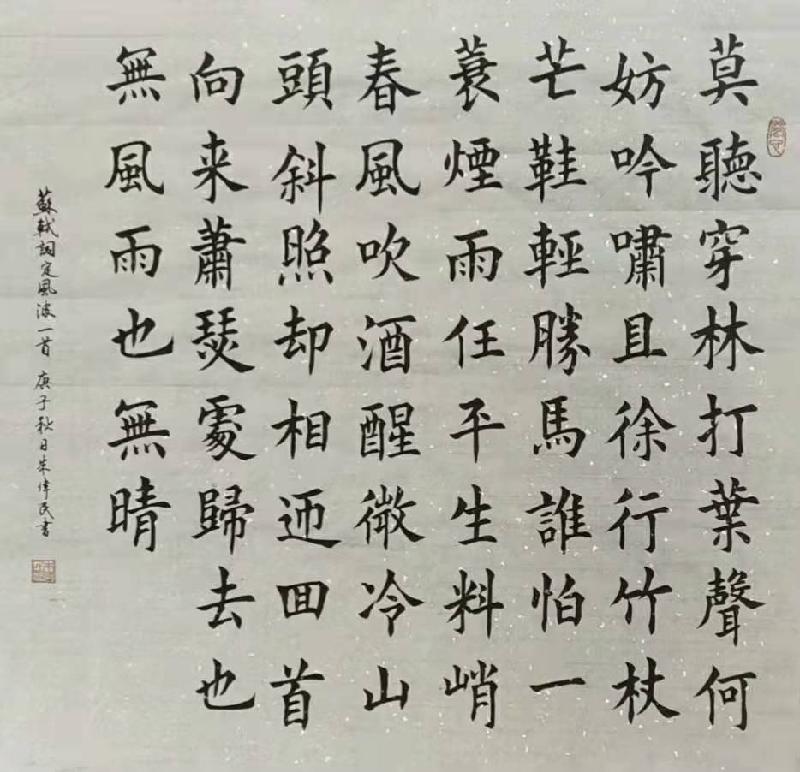 莫聽穿林打葉聲何
妨吟嘯且徐行竹杖
芒鞋輕勝馬誰怕一
蓑煙雨任平生料峭
春風吹酒醒微冷山
頭斜照却相迎回首
向来蕭瑟處歸去也
無風雨也無晴
蘇軾詞定風波一首 庚子秋日朱偉民書